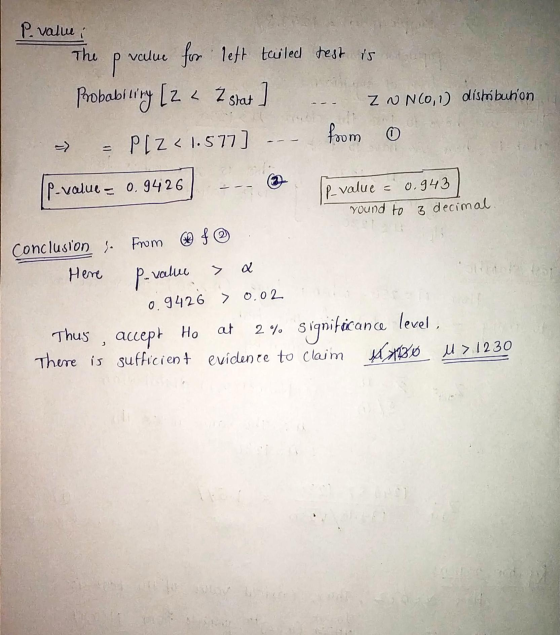 P-value :
The p value for left tailed test is
Probability [Z < Z stat ] --- Z ~ N(0,1) distribution
⇒ = P[Z < 1.577] --- from ①
P-value = 0.9426 --- ② p_value = 0.943
round to 3 decimal
Conclusion :- From ⊛ & ②
Here p-value > α
0.9426 > 0.02
Thus, accept H0 at 2% significance level.
There is sufficient evidence to claim μ > 1230